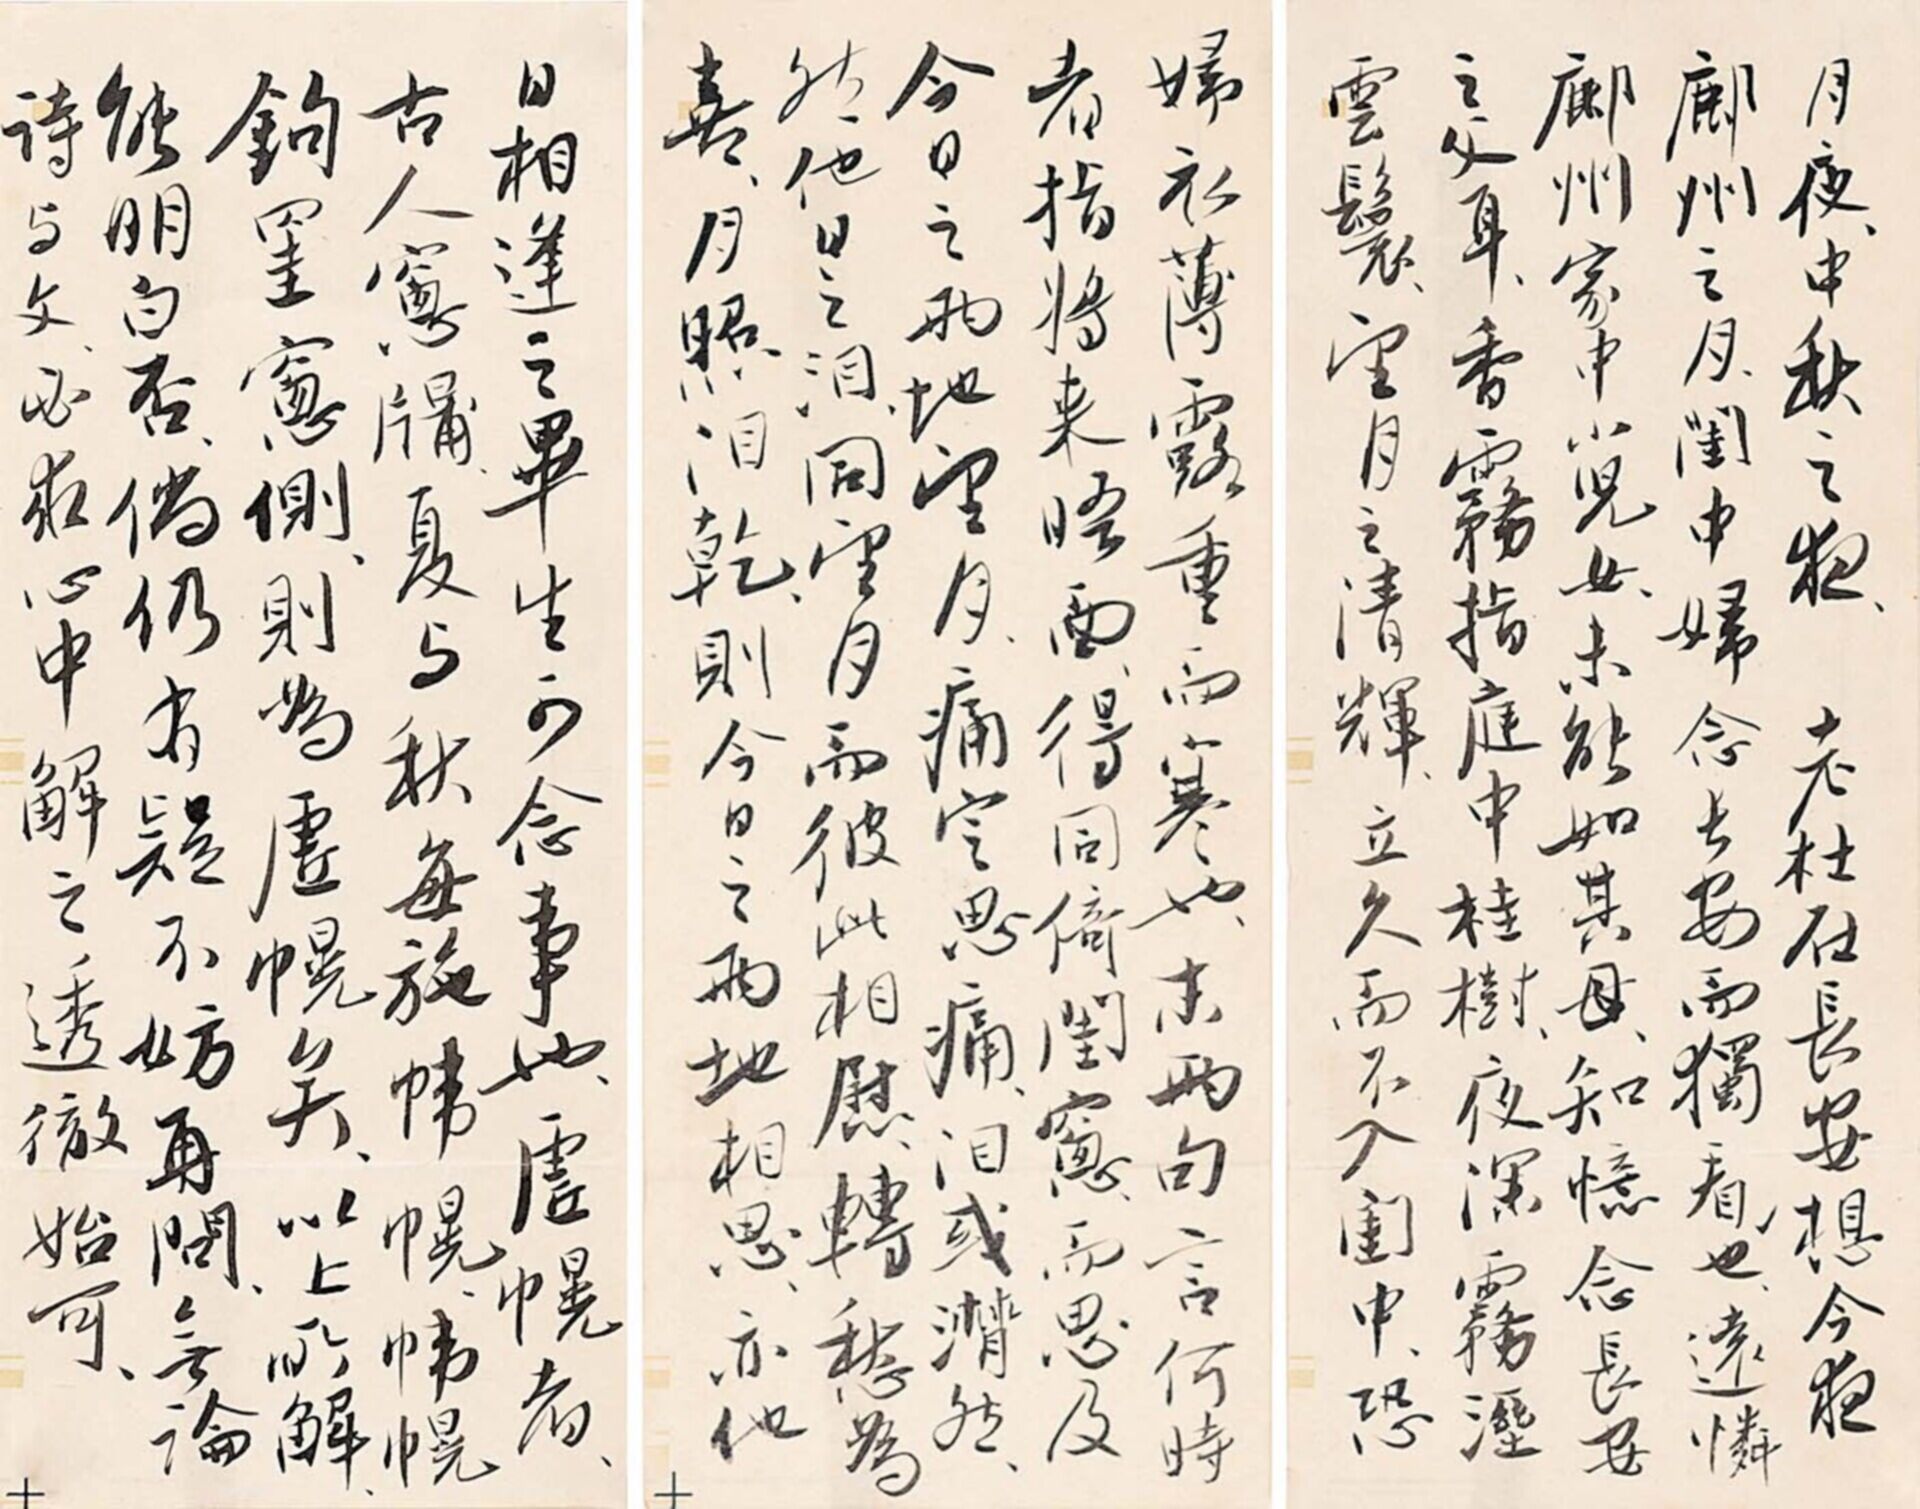 月夜、中秋之夜、老杜在長安想今夜
鄜州之月、閨中婦念長安而獨看也、遠憐
鄜州家中小児女、未能如其母、知憶念長安
之父耳、香霧指庭中桂樹、夜深霧溼
雲鬟、望月之清輝、立久而不入閨中、恐
婦衣薄露重而寒也、末兩句言何時
者指将来晤面、得同倚閨窻、而思及
今日之兩地望月、痛定思痛、泪或潸然、
然他日之泪、同望月而彼此相慰、轉愁為
喜、月照泪乾、則今日之兩地相思、亦他
日相逢之畢生可念事也、虛幌者、
古人窻牖、夏与秋每施幃幌、幃幌
鉤罣窻側、則為虛幌矣、以上所解、
能明白否、倘仍有疑不妨再問、無論
詩与文、必求心中解之透徹始可、